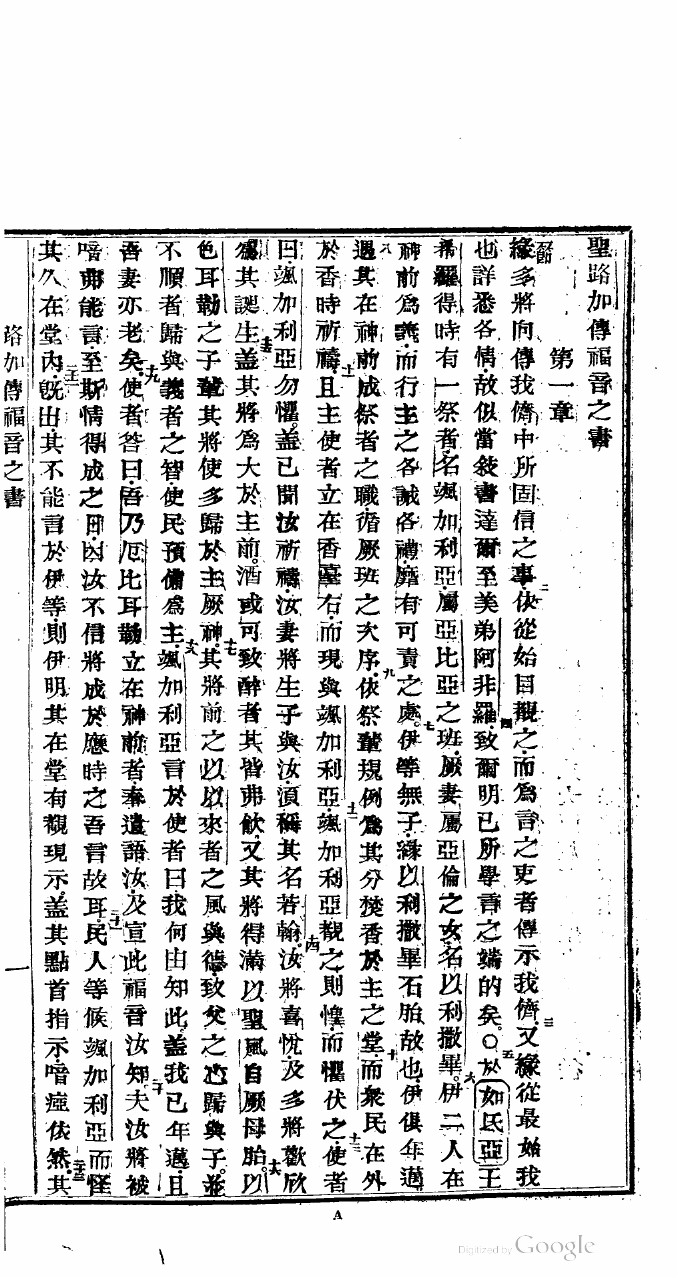 聖路加傳福音之書
第一章
節緣多將向傳我儕中所固信之事二依從始目覩之而為言之吏者傳示我儕三又緣從最始我
也詳悉各情故似當敍書達爾至美弟阿非羅四致爾明已所學言之端的矣○五於如氏亞王
希羅得時有一祭者名颯加利亞屬亞比亞之班厥妻屬亞倫之女名以利撒畢六伊二人在
神前為義而行主之各誡各禮靡有可責之處七伊等無子緣以利撒畢石胎故也伊俱年邁
八遇其在神前成祭者之職循厥班之次序九依祭輩規例為其分焚香於主之堂十而衆民在外
於香時祈禱十一且主使者立在香臺右而現與颯加利亞十二颯加利亞覩之則惶而懼伏之十三使者
曰颯加利亞勿懼蓋已聞汝祈禱汝妻將生子與汝湏稱其名若翰十四汝將喜悅及多將歡欣
為其誕生十五蓋其將為大於主前酒或可致醉者其皆弗飲又其將得滿以聖風自厥母胎十六以
色耳勒之子輩其將使多歸於主厥神十七其將前之以以來者之風與德致父之心歸與子並
不順者歸與義者之智使民預備為主十八颯加利亞言於使者曰我何由知此蓋我已年邁且
吾妻亦老矣十九使者答曰吾乃厄比耳勒立在神前者奉遣語汝及宣此福音汝知二十夫汝將被
喑弗能言至斯情得成之日因汝不信將成於應時之吾言故耳二十一民人等候颯加利亞而怪
其久在堂內二十二旣出其不能言於伊等則伊明其在堂有觀現示蓋其點首指示喑瘂依然二十三其
路加傳福音之書
一
A
Digitized by Google